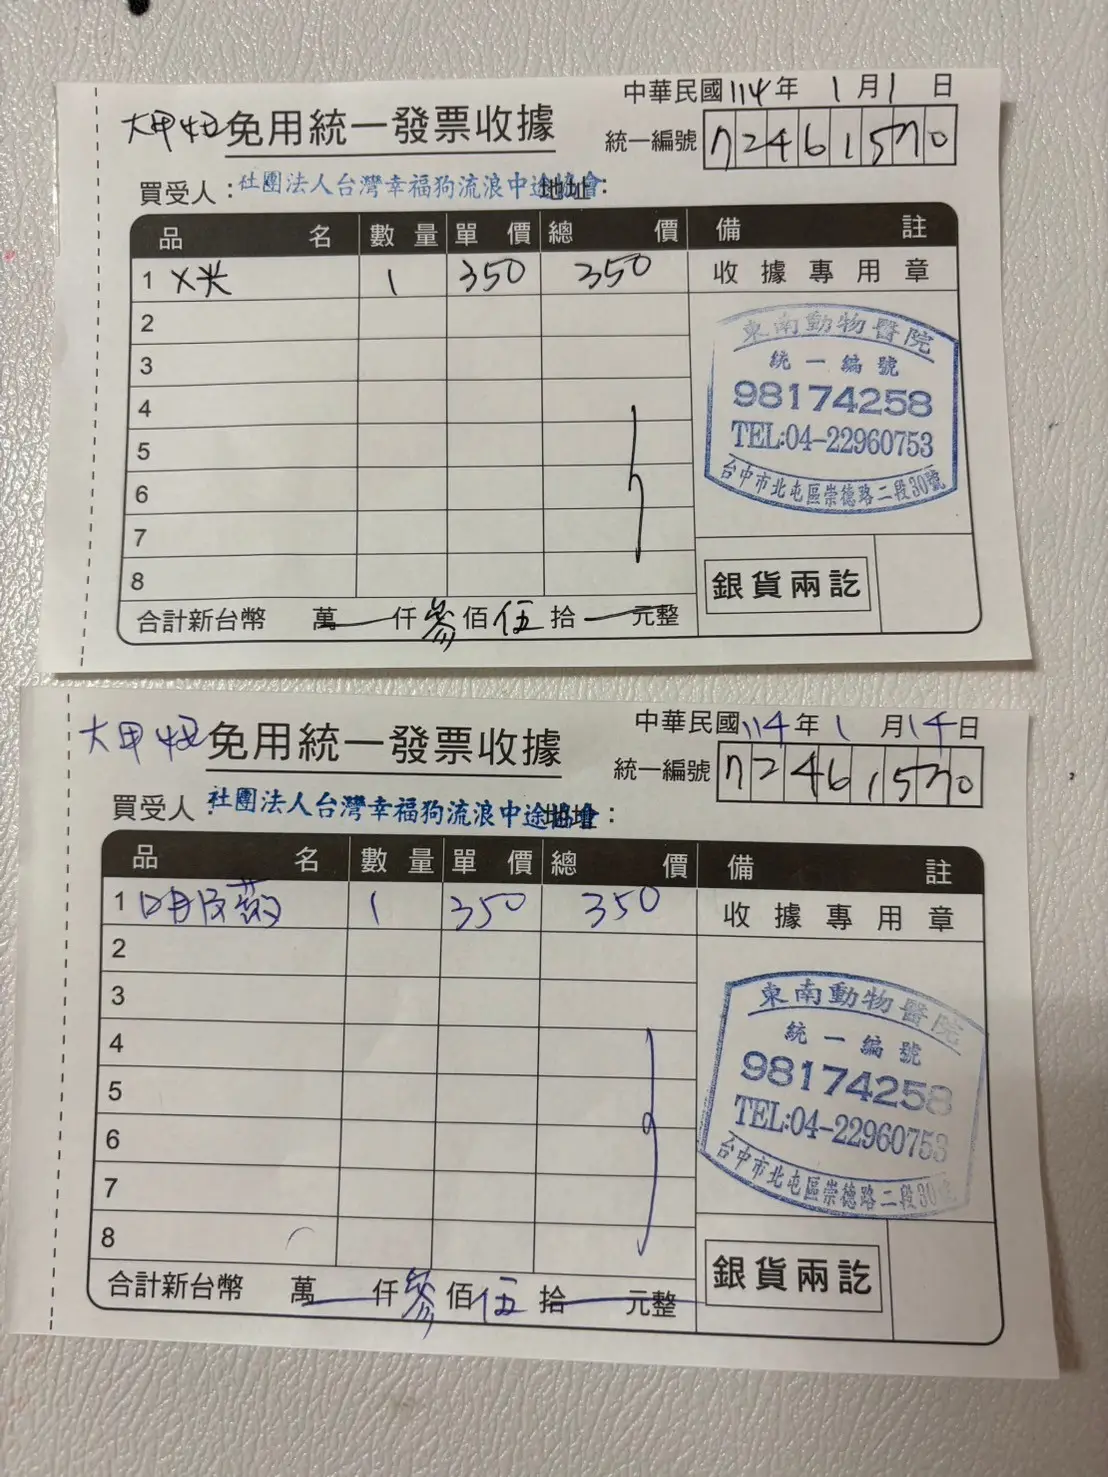 中華民國114年 1月1日
大甲妞 免用統一發票收據
統一編號 72461570
買受人：社團法人台灣幸福狗流浪中途協會 地址：
品名 數量 單價 總價 備註
1 X光 1 350 350 收據專用章
2
3
4
5
6
7
8
東南動物醫院
統一編號
98174258
TEL:04-22960753
台中市北屯區崇德路二段30號
銀貨兩訖
合計新台幣 萬 仟 參 佰 伍 拾 元整
中華民國114年 1月14日
大甲妞 免用統一發票收據
統一編號 72461570
買受人：社團法人台灣幸福狗流浪中途協會 地址：
品名 數量 單價 總價 備註
1 1 350 350 收據專用章
2
3
4
5
6
7
8
東南動物醫院
統一編號
98174258
TEL:04-22960753
台中市北屯區崇德路二段30號
銀貨兩訖
合計新台幣 萬 仟 參 佰 伍 拾 元整